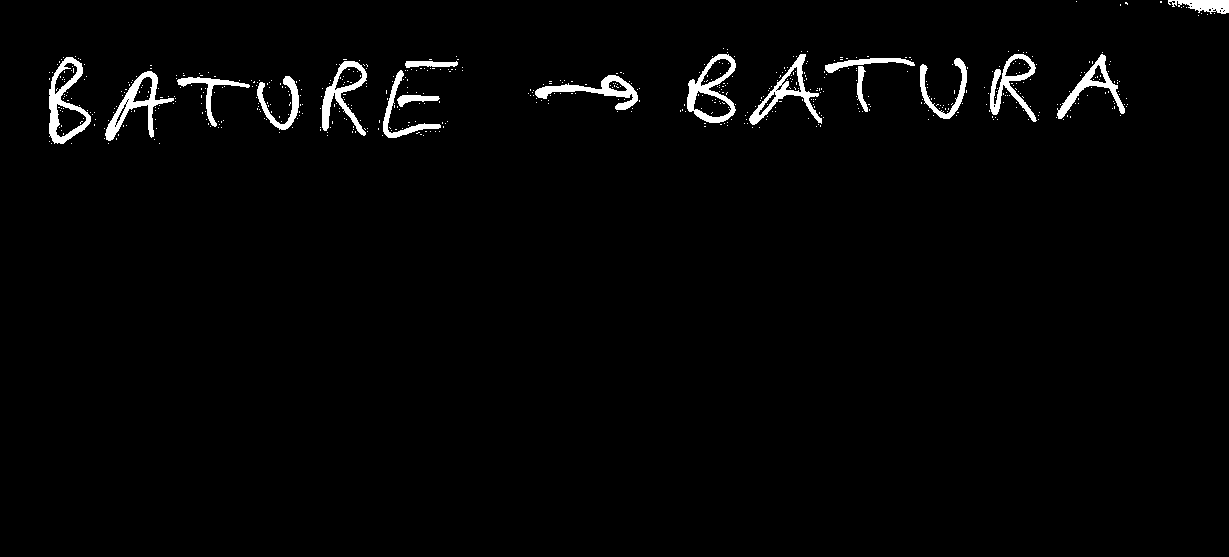 BATURE → BATURA